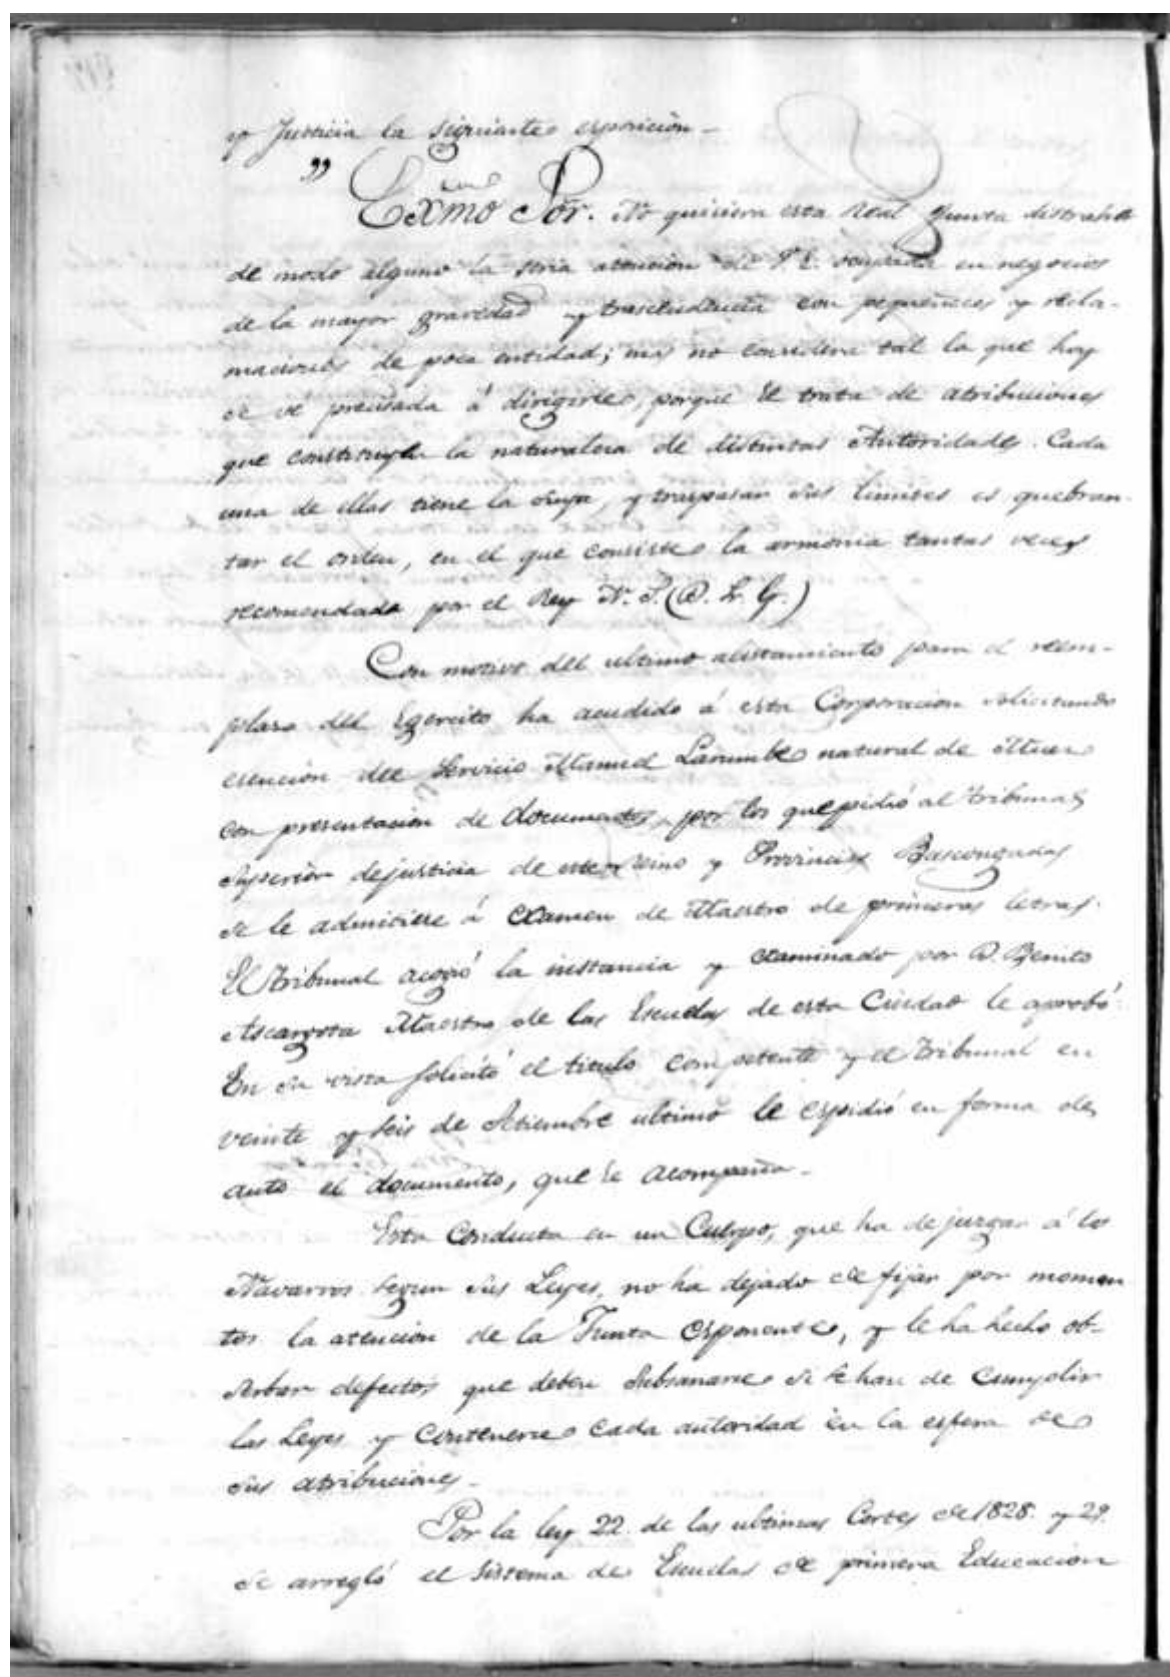 y Justicia la siguiente esposición -
" Exmo Sor. No quisiera esta Real Junta distraher
de modo alguno la seria atencion de V. E. ocupada en negocios
de la mayor gravedad y trascendencia con pequeñeces y recla-
maciones de poca entidad; mas no considera tal la que hoy
se ve precisada á dirigirle, porque se trata de atribuciones
que constituyen la naturaleza de distintas Autoridades. Cada
una de ellas tiene la suya, y traspasar sus limites es quebran-
tar el orden, en el que consiste la armonia tantas veces
recomendada por el Rey N. S. (Q. D. G.)
Con motivo del ultimo alistamiento para el reem-
plazo del Egercito ha acudido á esta Corporacion solicitando
esencion del Servicio Manuel Larumbe natural de Muez
con presentacion de documentos, por los que pidió al Tribunal
Superior de justicia de este Reino y Provincias Bascongadas
se le admitiese á examen de Maestro de primeras letras.
El Tribunal acogió la instancia y examinado por D. Benito
Ascarrota Maestro de las Escuelas de esta Ciudad le aprobó:
En su vista solicitó el titulo competente y el Tribunal en
veinte y seis de Setiembre ultimo le espidió en forma de
auto el documento, que se acompaña -
Esta conducta en un Cuerpo, que ha de juzgar á los
Navarros segun sus Leyes, no ha dejado de fijar por momen
tos la atencion de la Junta esponente, y le ha hecho ob-
serbar defectos que deben subsanarse si se han de cumplir
las Leyes y contenerse cada autoridad en la esfera de
sus atribuciones -
Por la ley 22. de las ultimas Cortes de 1828. y 29.
se arregló el sistema de Escuelas de primera Educacion